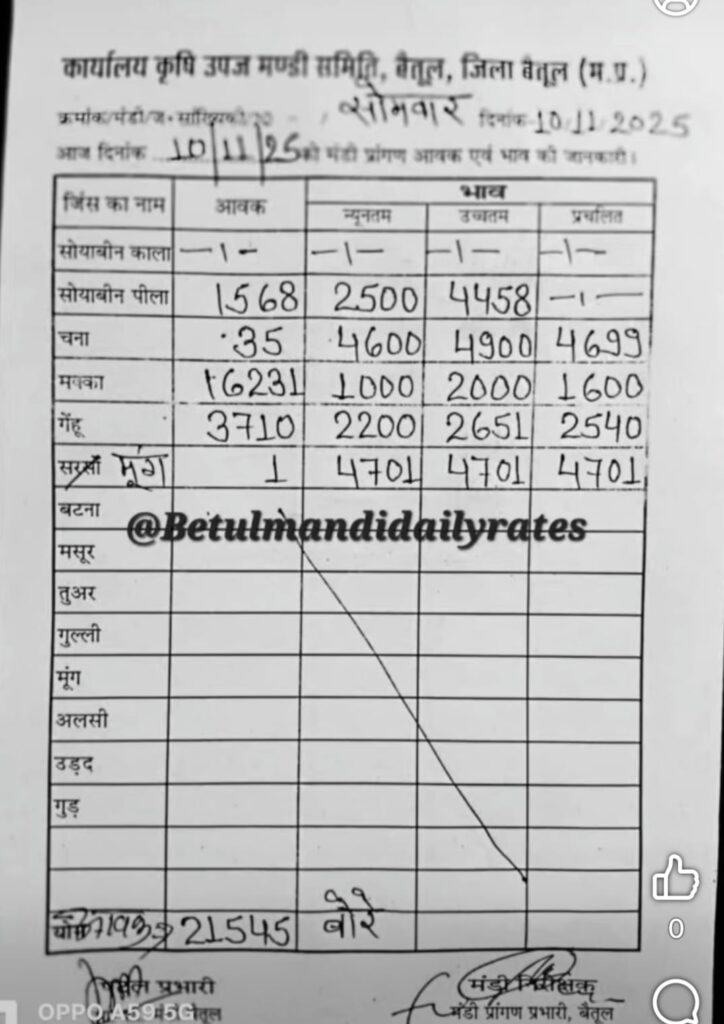 कार्यालय कृषि उपज मण्डी समिति, बैतूल, जिला बैतूल (म.प्र.)
क्रमांक/मंडी/ज-सांख्यिकी/20 सोमवार दिनांक 10.11.2025
आज दिनांक 10/11/25 को मंडी प्रांगण आवक एवं भाव की जानकारी।
जिंस का नाम आवक भाव
न्यूनतम उच्चतम प्रचलित
सोयाबीन काला —ı— —ı— —ı— —ı—
सोयाबीन पीला 1568 2500 4458 —ı—
चना 35 4600 4900 4699
मक्का 16231 1000 2000 1600
गेंहू 3710 2200 2651 2540
सरसों मूंग 1 4701 4701 4701
बटना
@Betulmandidailyrates
मसूर
तुअर
गुल्ली
मूंग
अलसी
उड़द
गुड़
21545 बोरे
प्रभारी मंडी निरीक्षक
बैतूल मंडी प्रांगण प्रभारी, बैतूल
OPPO A59 5G
0